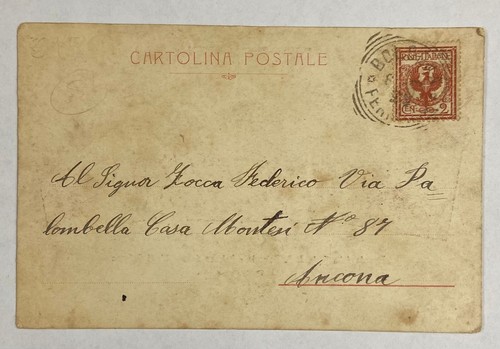 CARTOLINA POSTALE
POSTE ITALIANE
CENT. 2
Al Signor Zocca Federico Via Pa
lombella Casa Montesi N.º 87
Ancona